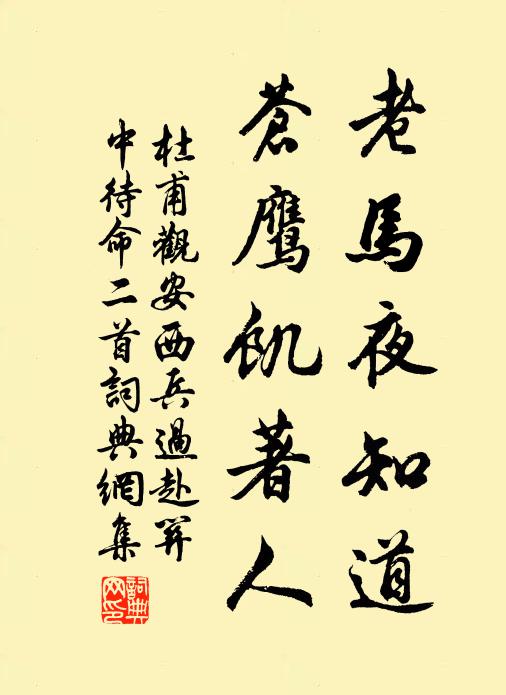 老馬夜知道
蒼鷹飢著人
杜甫觀安西兵過赴關
中待命二首詞典網集
詞典
网印